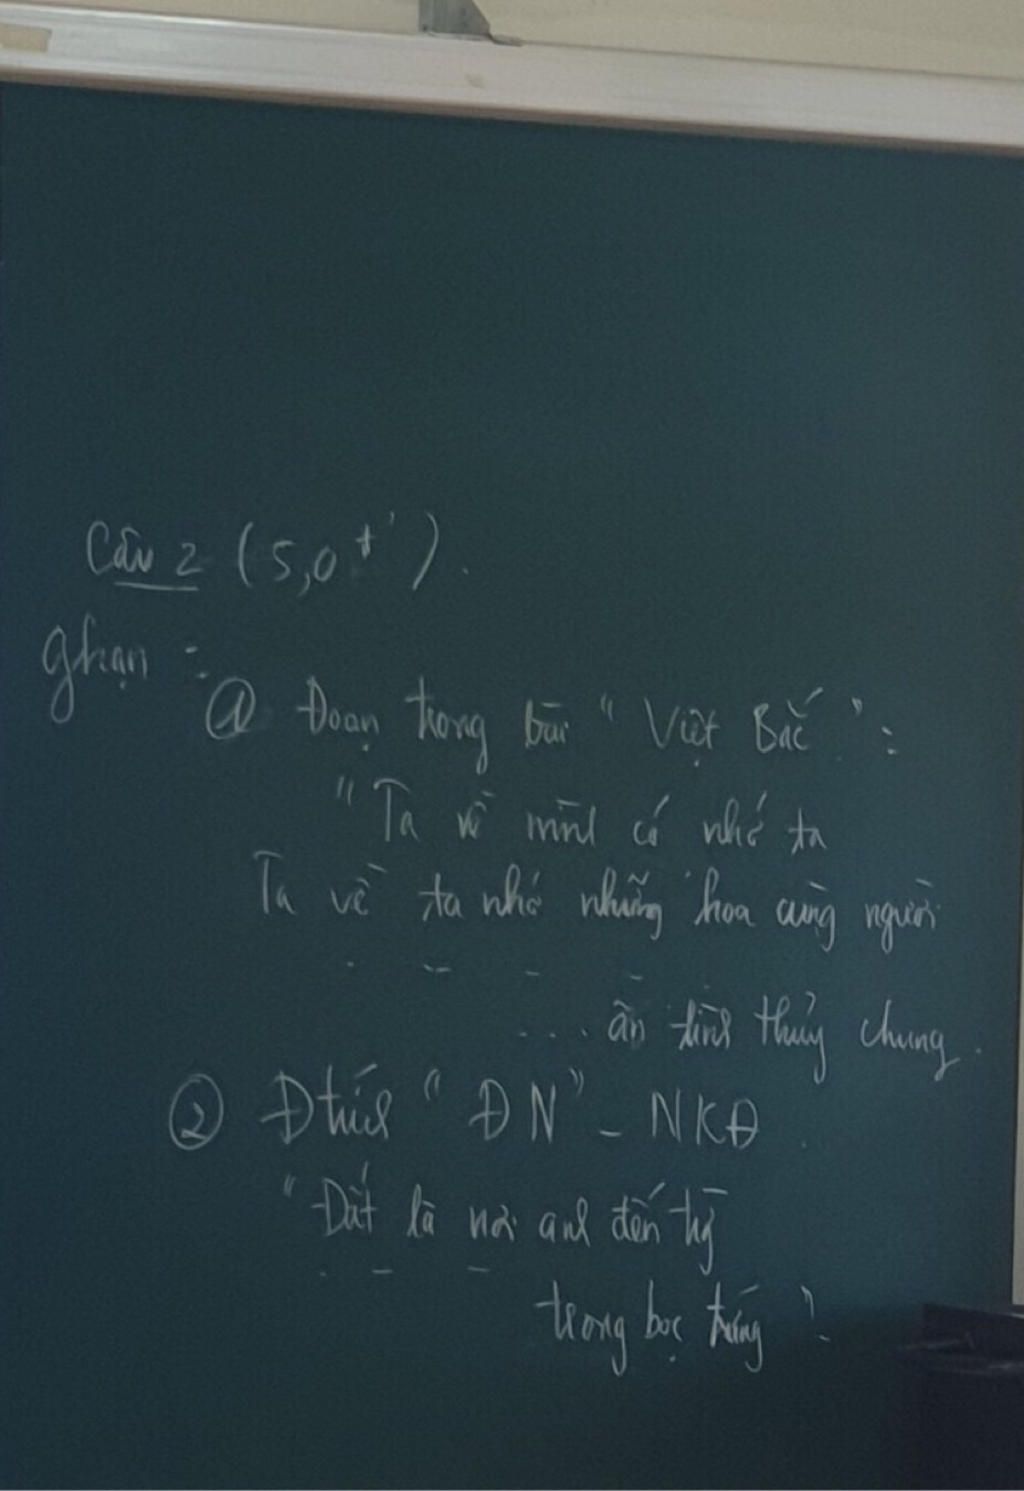 Câu 2 (5,0 đ).
ghạn:
① Đoạn trong bài "Việt Bắc":
"Ta về mình có nhớ ta
Ta về ta nhớ những hoa cùng người
. - - - -
.... ân tình thủy chung.
② Đtrích "ĐN" - NKĐ.
"Đất là nơi anh đến trg
. - -
trong bọc trứng".